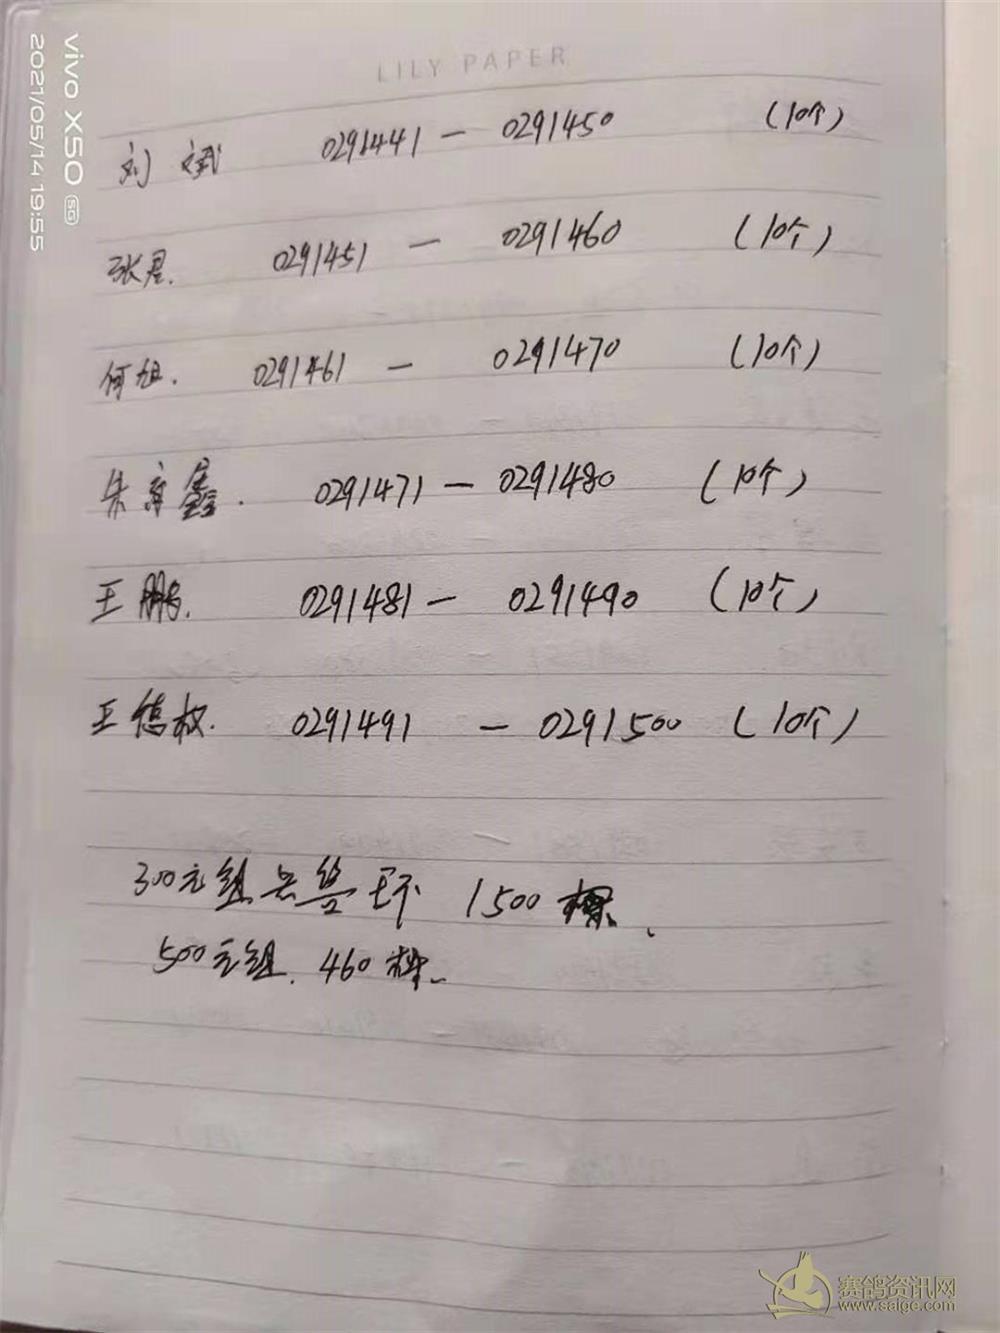 LILY PAPER
刘斌 0291441 — 0291450 (10个)
张君. 0291451 — 0291460 (10个)
何旭. 0291461 — 0291470 (10个)
朱 鑫. 0291471 — 0291480 (10个)
王鹏. 0291481 — 0291490 (10个)
王德权. 0291491 — 0291500 (10个)
300元组共售环 1500 棵.
500元组. 460棵.
vivo X50 5G
2021/05/14 19:55
赛鸽资讯网
www.saige.com